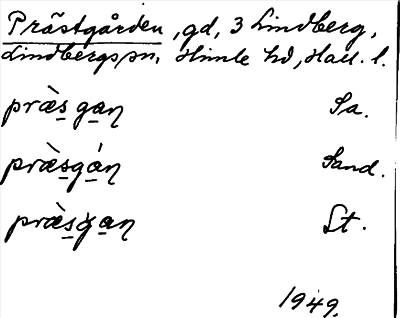 Prästgården, gd, 3 Lindberg,
Lindbergs sn, Himle hd, Hall. l.
præ̀s̱ ga̱ɳ Sa.
præ̀s̱gá̱ɳ Sand.
præ̀s̱ɣa̱ɳ St.
1949.